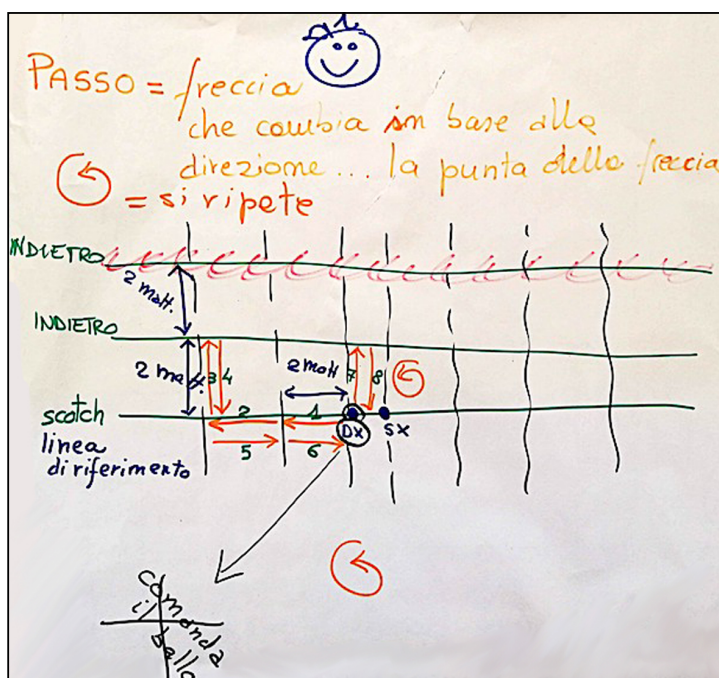 PASSO = freccia
che cambia in base alla
direzione... la punta della freccia
= si ripete
INDIETRO
2 matt.
INDIETRO
2 matt.
3 4
2 matt
7 8
scotch
2 1
DX SX
linea
di riferimento
5 6
comanda
il
ballo